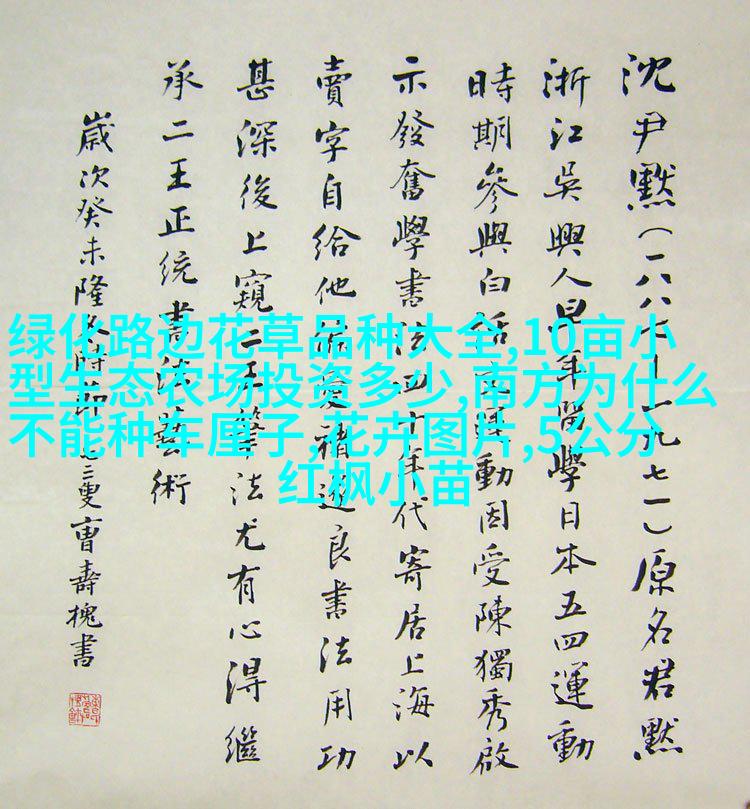 沈尹默（一八八七—一九七一）原名君默
浙江吳興人早年留學日本五四運動
時期參與白話文運動因受陳獨秀啟
示發奮學書法四十年代寄居上海以
賣字自給他於褚遂良書法用功
甚深後上窺二王筆法尤有心得繼
承二王正統書法藝術
歲次癸未隆冬時節七三叟曹壽槐書
绿化路边花草品种大全,10亩小
型生态农场投资多少,南方为什么
不能种车厘子,花卉图片,5公分
红枫小苗